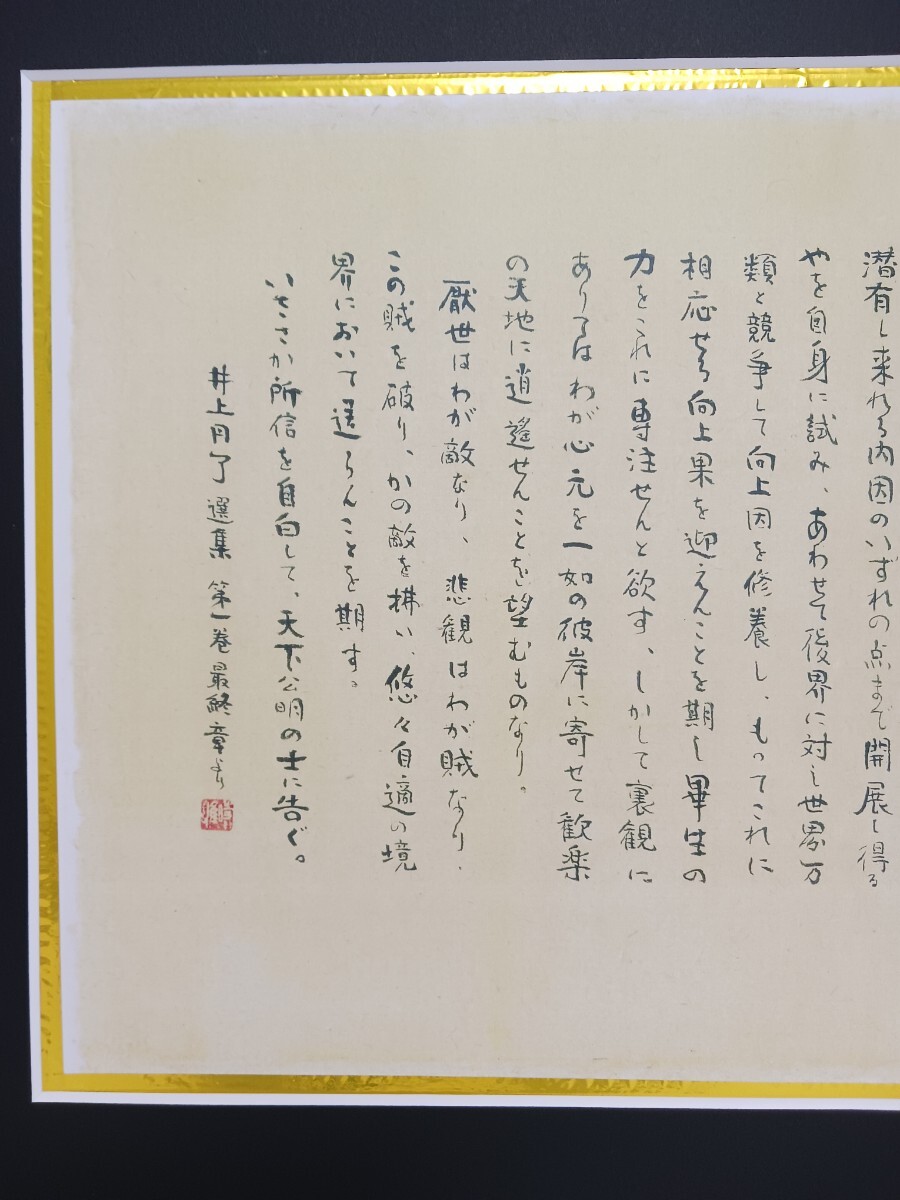 潜有し来れる内因のいずれの点まで開展し得る
やを自身に試み、あわせて後界に対し世界万
類と競争して向上因を修養し、もってこれに
相応せる向上果を迎えんことを期し畢生の
力をこれに専注せんと欲す、しかして裏観に
ありてはわが心元を一如の彼岸に寄せて歓楽
の天地に逍遙せんことを望むものなり。
厭世はわが敵なり、悲観はわが賊なり、
この賊を破り、かの敵を拂い、悠々自適の境
界において送らんことを期す。
いさゝか所信を自白して、天下公明の士に告ぐ。
井上円了選集 第一巻最終章より